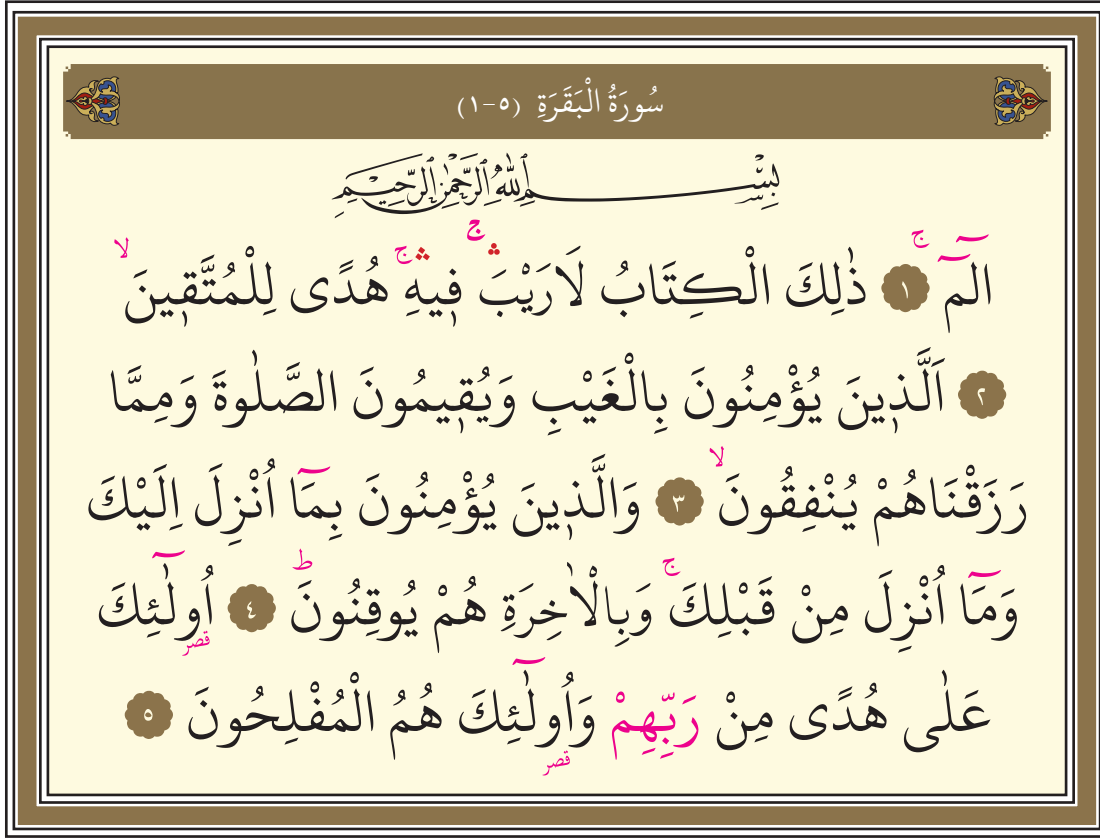 سُورَةُ الْبَقَرَةِ (١-٥)
بِسْمِ اللّٰهِ الرَّحْمٰنِ الرَّحِيمِ
الٓمٓ ۚ ﴿١﴾ ذٰلِكَ الْكِتَابُ لَارَيْبَۚۛ فِيهِۚۛ هُدًى لِلْمُتَّقِينَۙ
﴿٢﴾ اَلَّذِينَ يُؤْمِنُونَ بِالْغَيْبِ وَيُقِيمُونَ الصَّلٰوةَ وَمِمَّا
رَزَقْنَاهُمْ يُنْفِقُونَۙ ﴿٣﴾ وَالَّذِينَ يُؤْمِنُونَ بِمَٓا اُنْزِلَ اِلَيْكَ
وَمَٓا اُنْزِلَ مِنْ قَبْلِكَۚ وَبِالْاٰخِرَةِ هُمْ يُوقِنُونَۜؕ ﴿٤﴾ اُولٰٓئِكَ
قصر
عَلٰى هُدًى مِنْ رَبِّهِمْ وَاُولٰٓئِكَ هُمُ الْمُفْلِحُونَ ﴿٥﴾
قصر